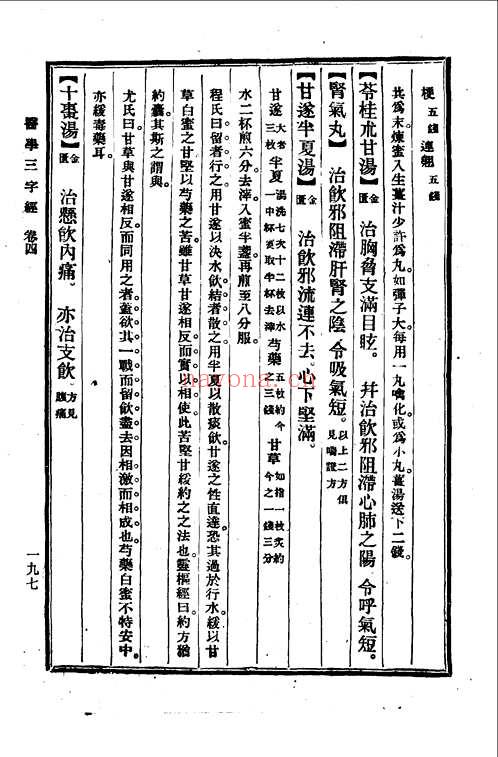 梗五錢 連翹五錢
共爲末煉蜜入生薑汁少許爲丸如彈子大每用一丸噙化或爲小丸薑湯送下二錢。
【苓桂朮甘湯】金匱 治胸脅支滿目眩。 幷治飲邪阻滯心肺之陽 令呼氣短。
【腎氣丸】 治飲邪阻滯肝腎之陰 令吸氣短。以上二方俱見喘證方
【甘遂半夏湯】金匱 治飲邪流連不去。心下堅滿。
甘遂大者三枚 半夏湯洗七次十二枚以水一中杯煎取半杯去滓 芍藥五枚約今之三錢 甘草如指一枚炙約今之一錢三分
水二杯煎六分去滓入蜜半盞再煎至八分服。
程氏曰留者行之用甘遂以決水飲結者散之用半夏以散痰飲甘遂之性直達恐其過於行水緩以甘
草白蜜之甘堅以芍藥之苦雖甘草甘遂相反而實以相使此苦堅甘緩約之之法也靈樞經曰約方猶
約囊其斯之謂與。
尤氏曰甘草與甘遂相反而同用之者蓋欲其一戰而留飲盡去因相激而相成也芍藥白蜜不特安中。
亦緩毒藥耳。
【十棗湯】金匱 治懸飲內痛。 亦治支飲。方見腹痛
醫學三字經 卷四
一九七
nayona.cn